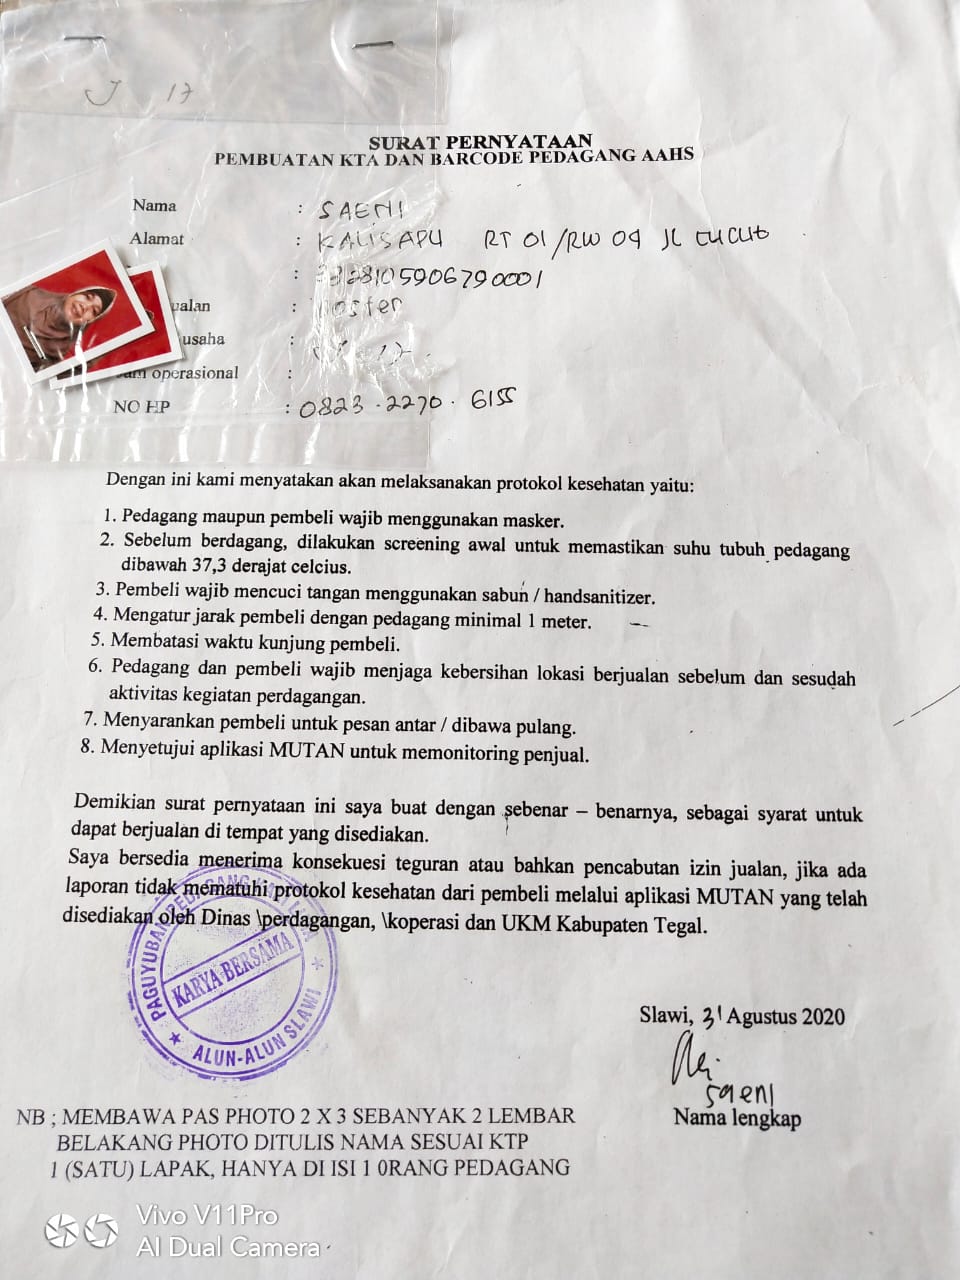 J 17
SURAT PERNYATAAN
PEMBUATAN KTA DAN BARCODE PEDAGANG AAHS
Nama : SAENI
Alamat : KALISAPU RT 01/RW 09 JL CUCUT
: 3328105906790001
ualan : Poster
usaha : 17
am operasional :
NO HP : 0823.2270.6155
Dengan ini kami menyatakan akan melaksanakan protokol kesehatan yaitu:
1. Pedagang maupun pembeli wajib menggunakan masker.
2. Sebelum berdagang, dilakukan screening awal untuk memastikan suhu tubuh pedagang
dibawah 37,3 derajat celcius.
3. Pembeli wajib mencuci tangan menggunakan sabun / handsanitizer.
4. Mengatur jarak pembeli dengan pedagang minimal 1 meter.
5. Membatasi waktu kunjung pembeli.
6. Pedagang dan pembeli wajib menjaga kebersihan lokasi berjualan sebelum dan sesudah
aktivitas kegiatan perdagangan.
7. Menyarankan pembeli untuk pesan antar / dibawa pulang.
8. Menyetujui aplikasi MUTAN untuk memonitoring penjual.
Demikian surat pernyataan ini saya buat dengan sebenar – benarnya, sebagai syarat untuk
dapat berjualan di tempat yang disediakan.
Saya bersedia menerima konsekuesi teguran atau bahkan pencabutan izin jualan, jika ada
laporan tidak mematuhi protokol kesehatan dari pembeli melalui aplikasi MUTAN yang telah
disediakan oleh Dinas \perdagangan, \koperasi dan UKM Kabupaten Tegal.
PAGUYUBAN PEDAGANG KAKI LIMA
KARYA BERSAMA
ALUN-ALUN SLAWI
Slawi, 31 Agustus 2020
saeni
Nama lengkap
NB ; MEMBAWA PAS PHOTO 2 X 3 SEBANYAK 2 LEMBAR
BELAKANG PHOTO DITULIS NAMA SESUAI KTP
1 (SATU) LAPAK, HANYA DI ISI 1 0RANG PEDAGANG
Vivo V11Pro
AI Dual Camera